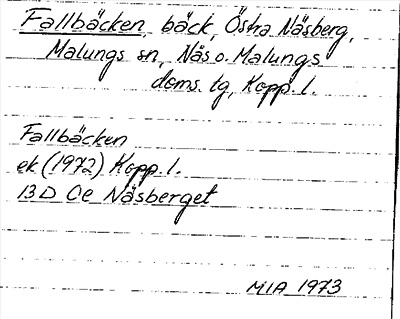 Fallbäcken, bäck, Östra Näsberg,
Malungs sn, Nås o. Malungs
doms. tg, Kopp. l.
Fallbäcken
ek (1972) Kopp. l.
13D 0e Näsberget
MIA 1973